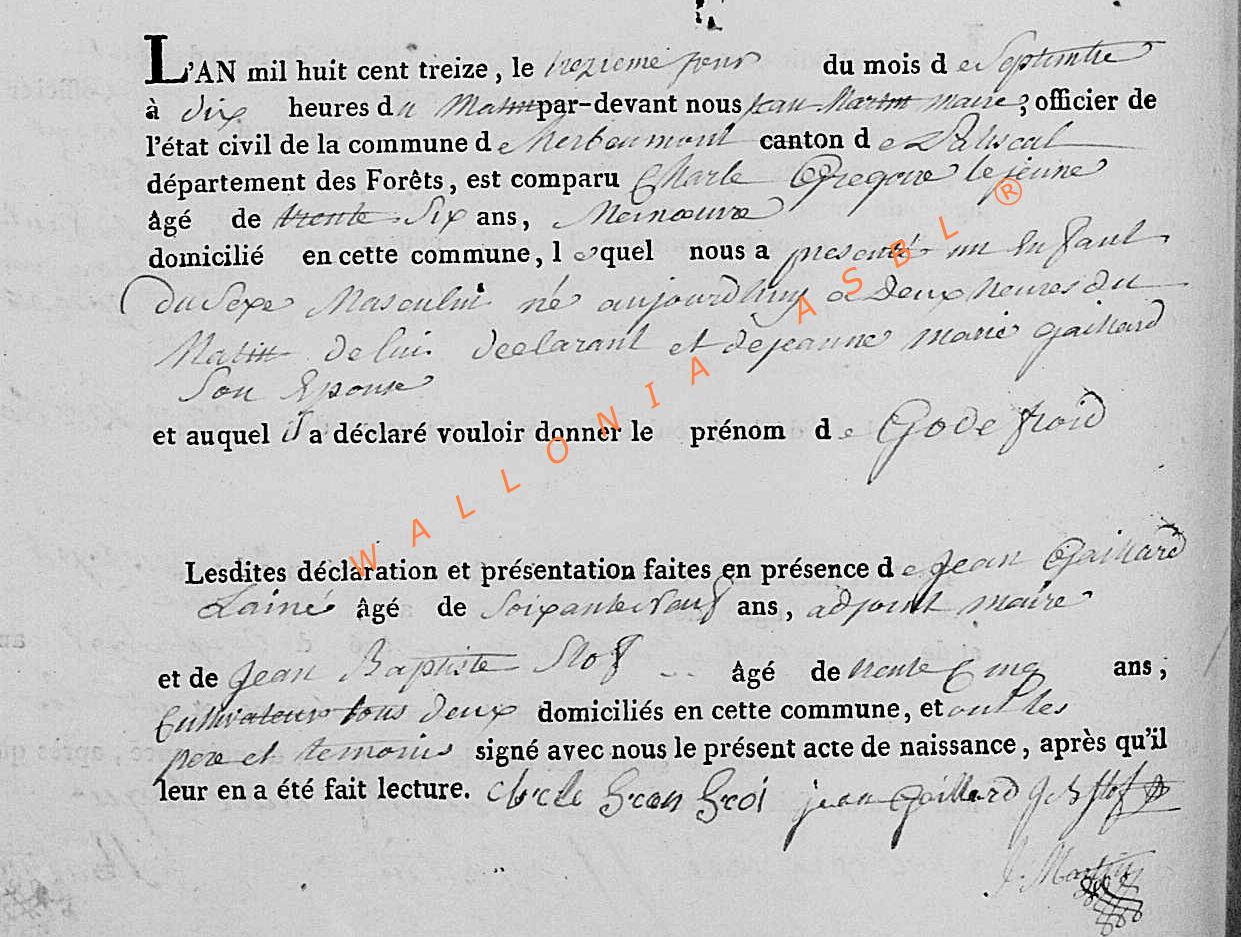 L'AN mil huit cent treize, le treizieme jour du mois de Septembre
à dix heures du Matin par-devant nous Jean Martin maire, officier de
l'état civil de la commune de Herbeumont canton de Paliseul
département des Forêts, est comparu Charle Gregoire le jeune
âgé de trente Six ans, Meinoeuvre
domicilié en cette commune, lequel nous a presenté un Enfant
du Sexe Masculin né aujourdhuy a Deux heures du
Matin de lui declarant et de jeanne marie gaillard
Son Epouse
et auquel il a déclaré vouloir donner le prénom de Godefroid
Lesdites déclaration et présentation faites en présence de Jean Gaillard
Lainé âgé de Soixante neuf ans, adjoint maire
et de Jean Baptiste Slof âgé de trente Cinq ans,
Cultivateur tous deux domiciliés en cette commune, et ont les
pere et temoins signé avec nous le présent acte de naissance, après qu'il
leur en a été fait lecture. jean gaillard J b Slof
J. Martin
WALLONIA ASBL ®